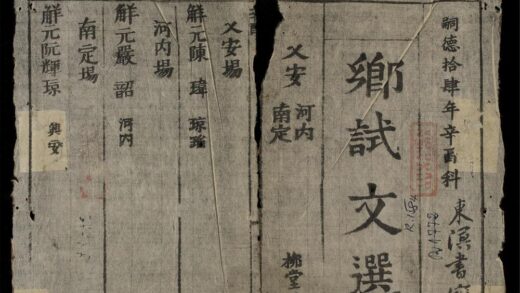 嗣德拾肆年辛酉科
東溟書
鄉試文選
乂安
河内
南定
柳堂
乂安場
觧元陳瑋 瓊瑠
河内場
觧元嚴韶 河内
南定場
觧元阮輝琼 興安